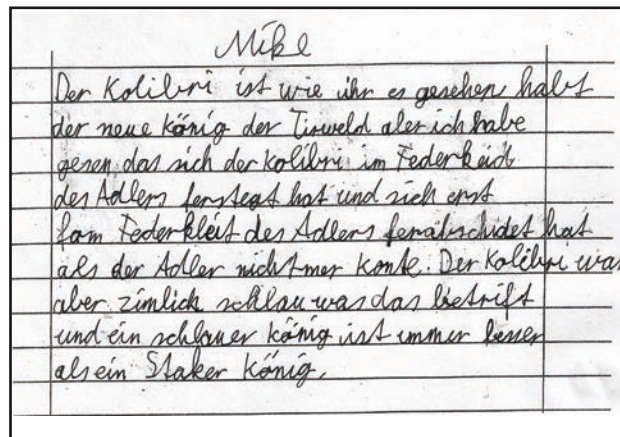 Mike
Der Kolibri ist wie ihr es gesehen habt
der neue König der Tirweld aber ich habe
gesen das sich der Kolibri im Federkeid
des Adlers ferstegt hat und sich erst
fom Federkleit des Adlers ferabschidet hat
als der Adler nicht mer konte. Der Kolibri war
aber zimlich schlau was das betrift
und ein schlauer König ist immer besser
als ein Staker König.